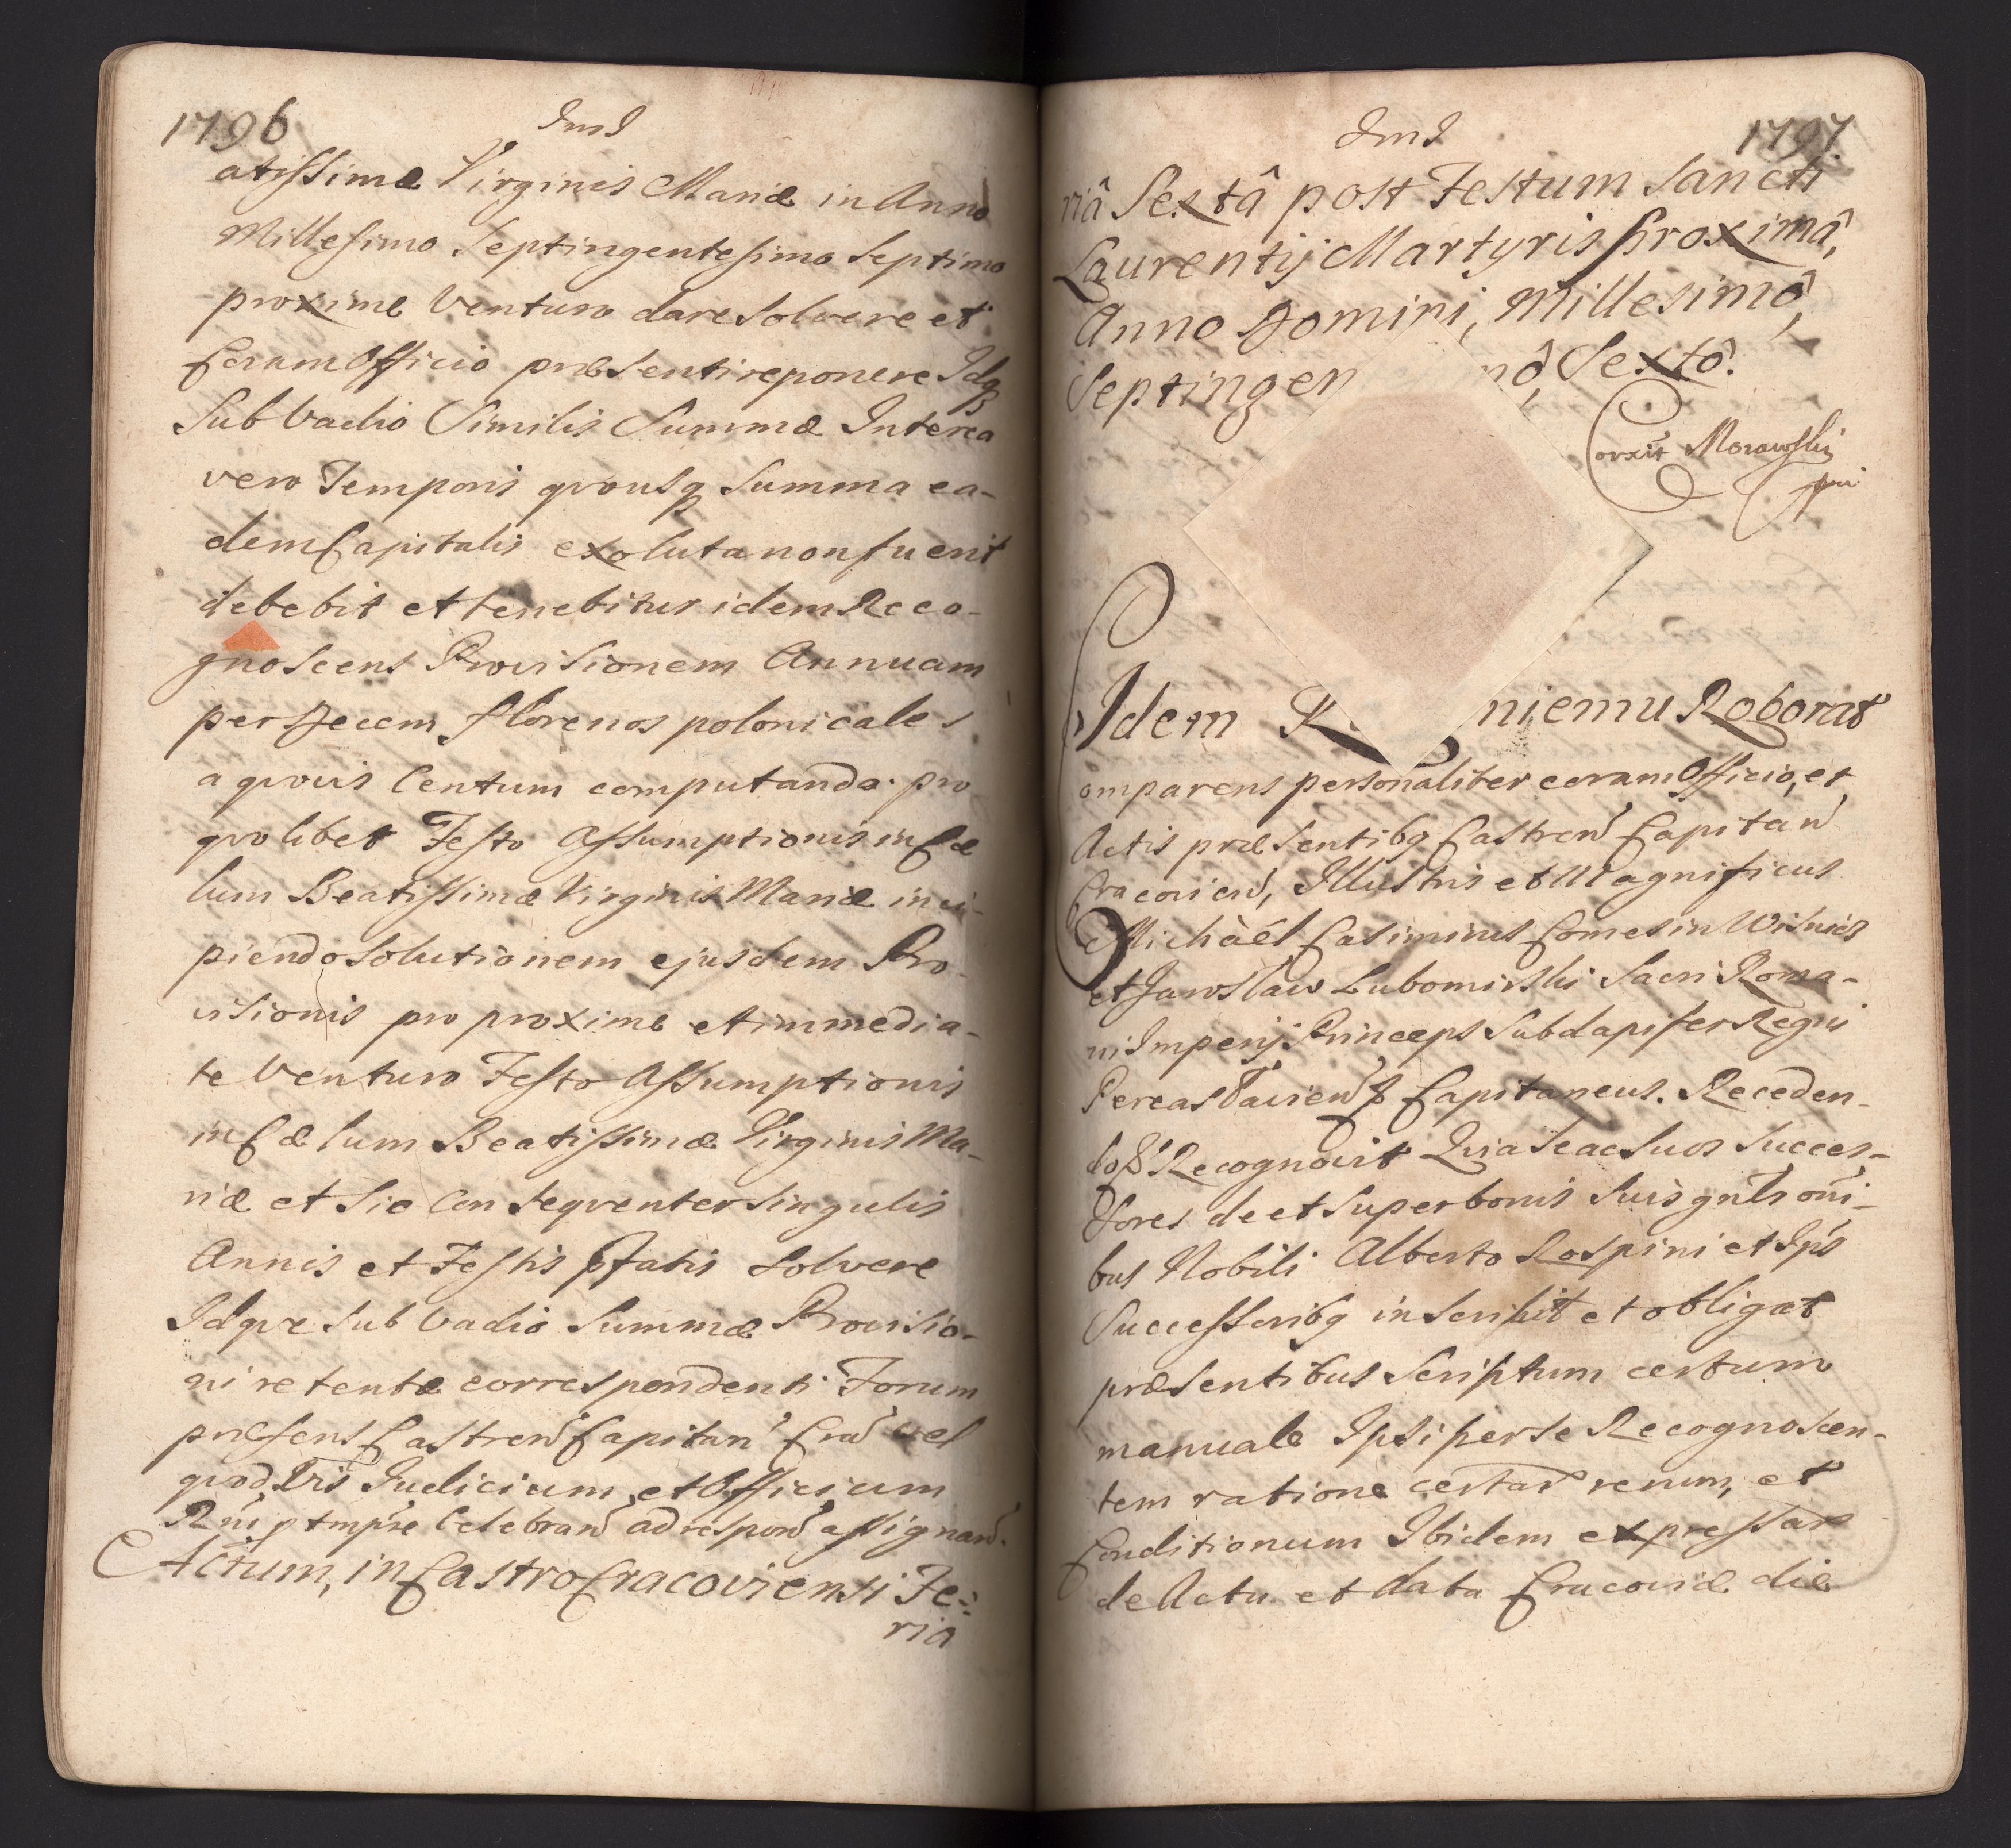 1796
atissimæ Virginis Mariæ in Anno
Millesimo Septingentesimo Septimo
proxime Venturo dare solvere et
Coram Officio præsenti reponere Idq
Sub Vadio Similis Summæ Interea
vero Temporis qvousq Summa ea-
dem Capitalis exoluta non fuerit
debebit et tenebitur idem Reco-
gnoscens Provisionem Annuam
per Decem florenos polonicales
a qvovis Centum computanda pro
qvolibet Festo Assumptionis in Cæ
lum Beatissimæ Virginis Mariæ inci-
piendo Solutionem ejusdem Pro-
visionis pro proxime et immedia-
te Venturo Festo Assumptionis
in Cælum Beatissimæ Virginis Ma-
riæ et Sic Conseqventer Singulis
Annis et Festis pfatis Solvere
Idqve Sub Vadio Summæ Provisio-
ni retentæ correspondenti Forum
præsens Castren Capitan Crac vel
qvodvis Judicium et Officium
Rni p tmpre Celebran ad respon assignan.
Actum, in Castro Cracoviensi Fe-
ria
1797
riâ Sextâ post Festum Sancti
Laurentij Martyris Proximâ,
Anno Domini, Millesimô,
Septingen nô, Sextô.
Corxit Morawski
Idem niemu Roborat
omparens personaliter coram Officio, et
Actis præsentibq Castren Capitan
Cracovien, Illustris et Magnificus
Michàél Casimirus Comes in Wisnicz
et Jaroslaw Lubomirski Sacri Roma-
ni Imperij Princeps Subdapifer Regni
Pereaslavien Capitaneus. Receden-
Recognovit Qvia Se ac Suos Succes-
sores de et Super bonis Suis gnlr oni-
bus Nobili Alberto Rospini et Ips
Successoribq inscribit et obligat
præsentibus Scriptum certum
manuale Ipsi per se Recognoscen-
tem ratione certar rerum, et
Conditionum Ibidem expressar
de Actu et data Cracoviæ die